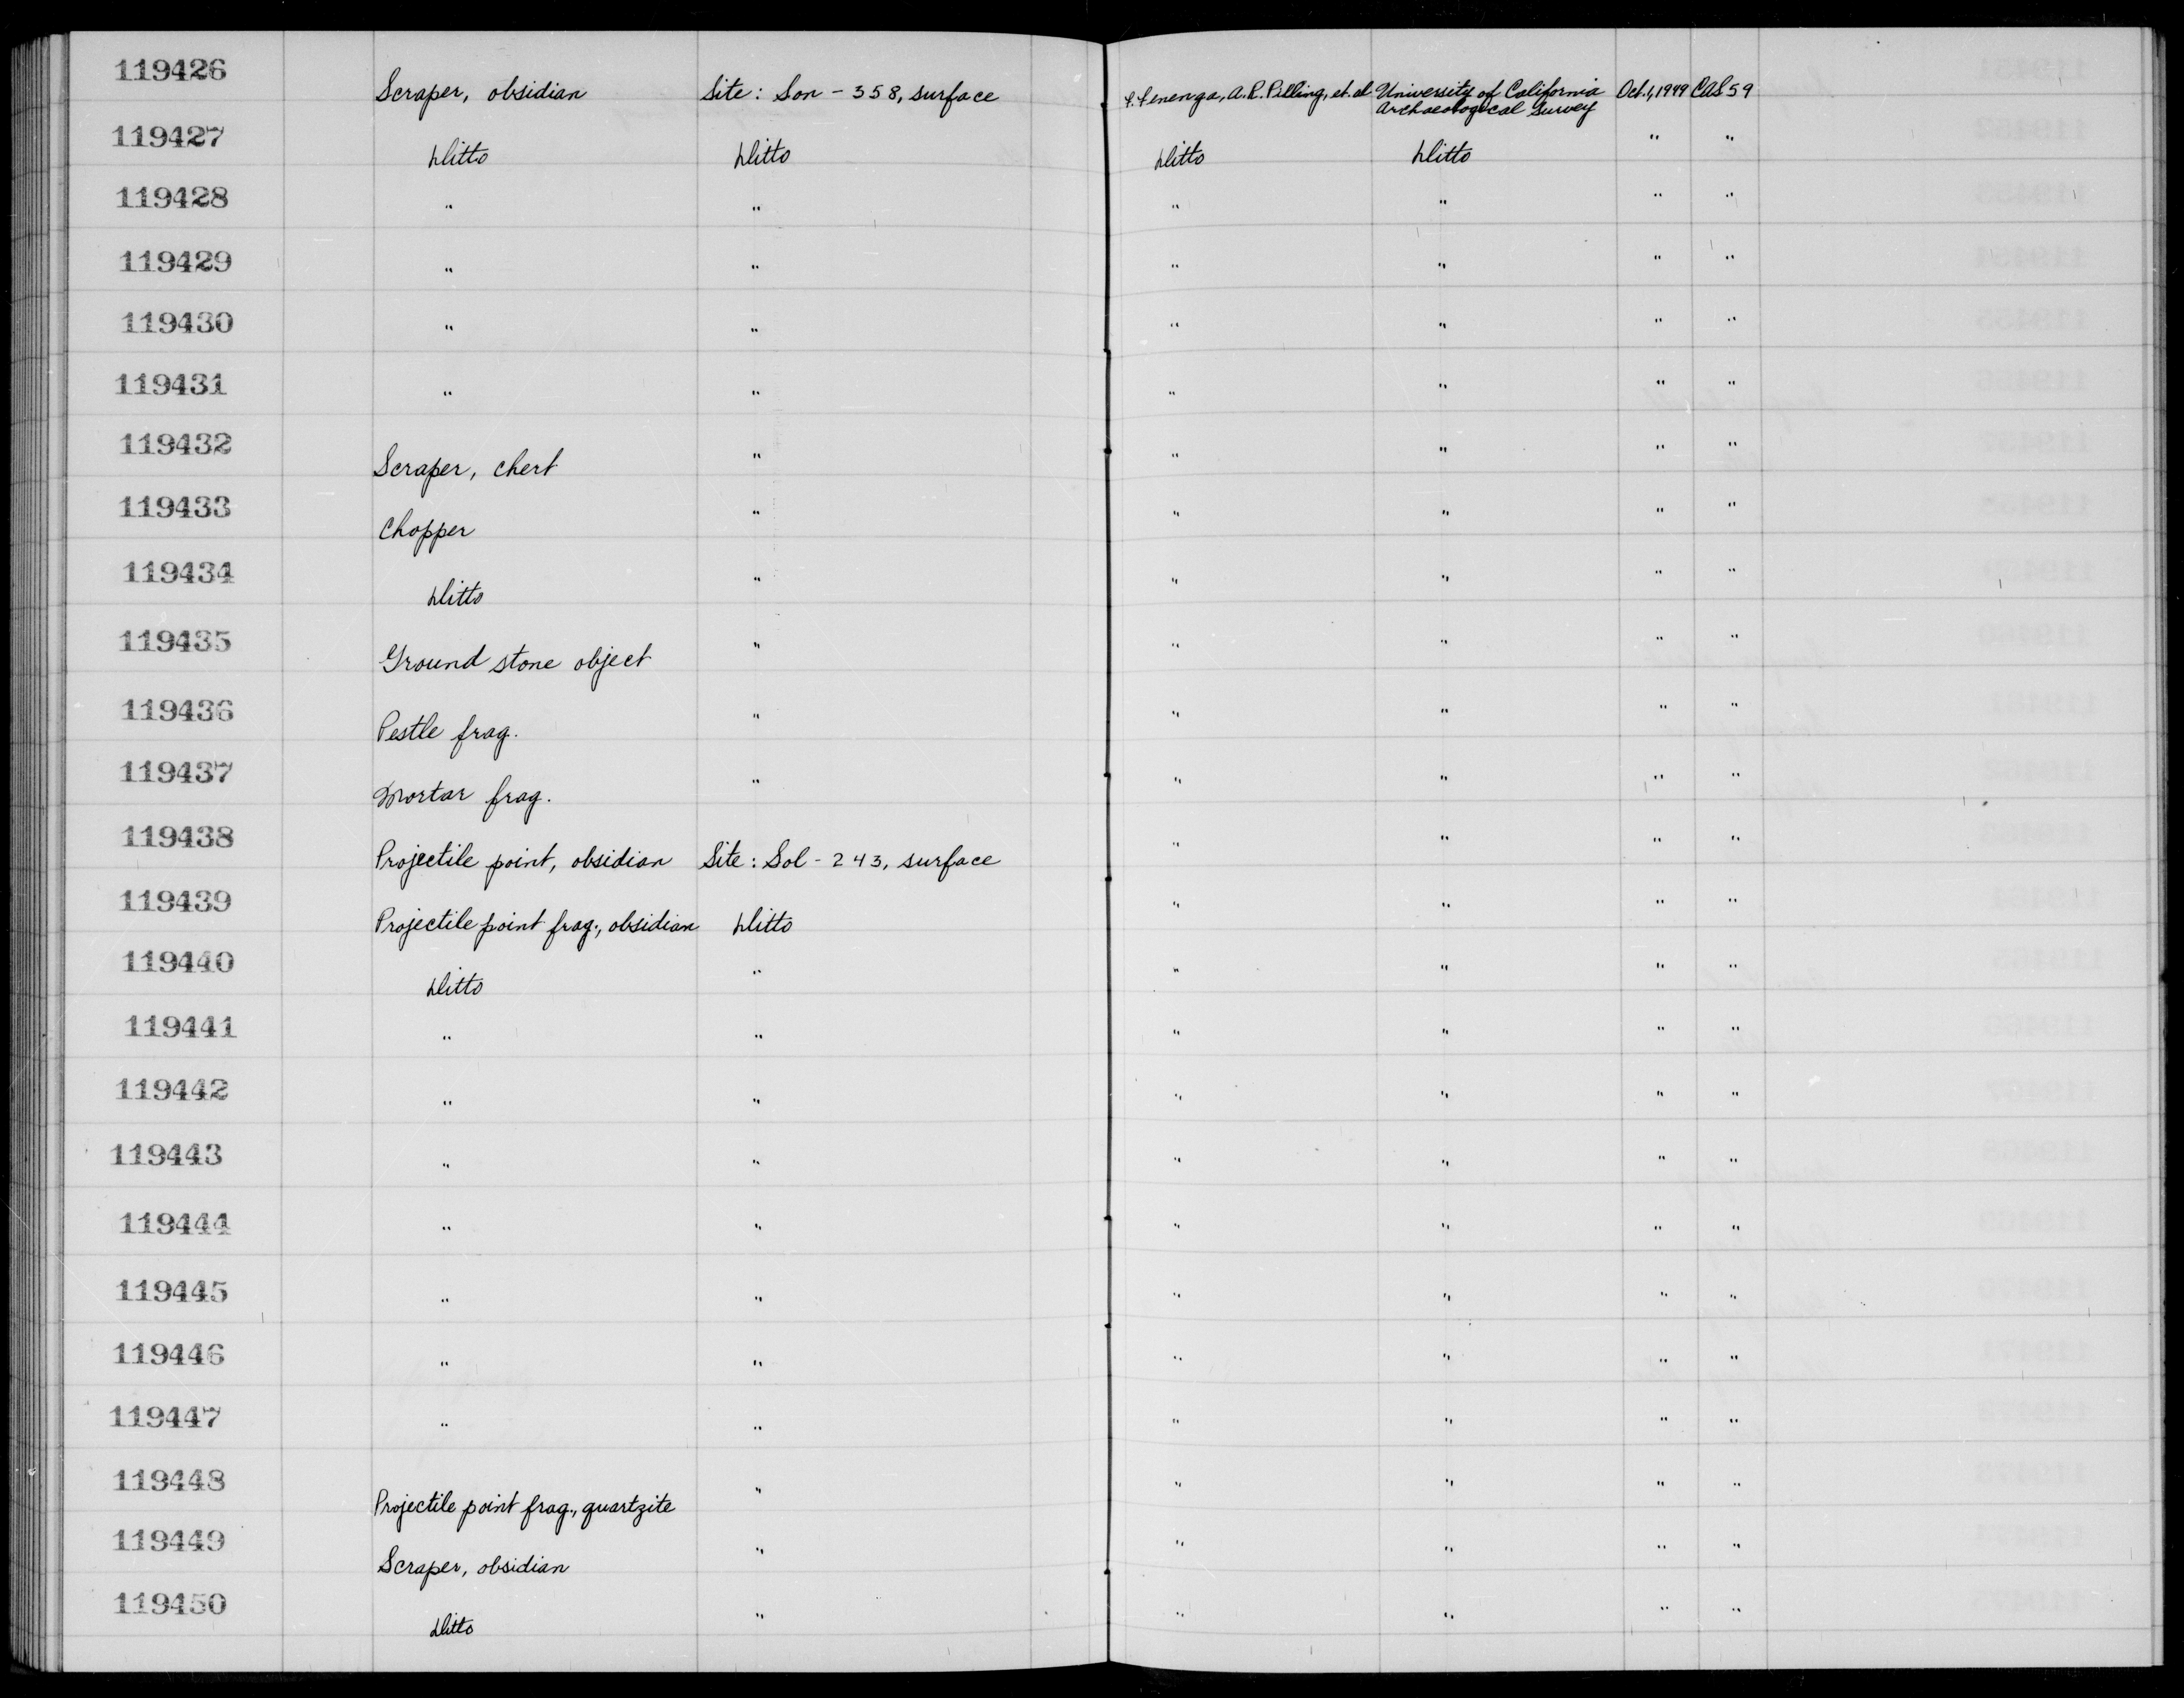 119426 Scraper, obsidian Site: Son - 358, surface F. Fenenga, A.R. Pilling, et. al University of California Oct. 1, 1949 CAS 59
Archaeological Survey
119427 Ditto Ditto Ditto Ditto " "
119428 " " " " " "
119429 " " " " " "
119430 " " " " " "
119431 " " " " " "
119432 Scraper, chert " " " " "
119433 Chopper " " " " "
119434 Ditto " " " " "
119435 Ground stone object " " " " "
119436 Pestle frag. " " " " "
119437 Mortar frag. " " " " "
119438 Projectile point, obsidian Site: Sol - 243, surface " " " "
119439 Projectile point frag., obsidian Ditto " " " "
119440 Ditto " " " " "
119441 " " " " " "
119442 " " " " " "
119443 " " " " " "
119444 " " " " " "
119445 " " " " " "
119446 " " " " " "
119447 " " " " " "
119448 Projectile point frag., quartzite " " " " "
119449 Scraper, obsidian " " " " "
119450 Ditto " " " " "